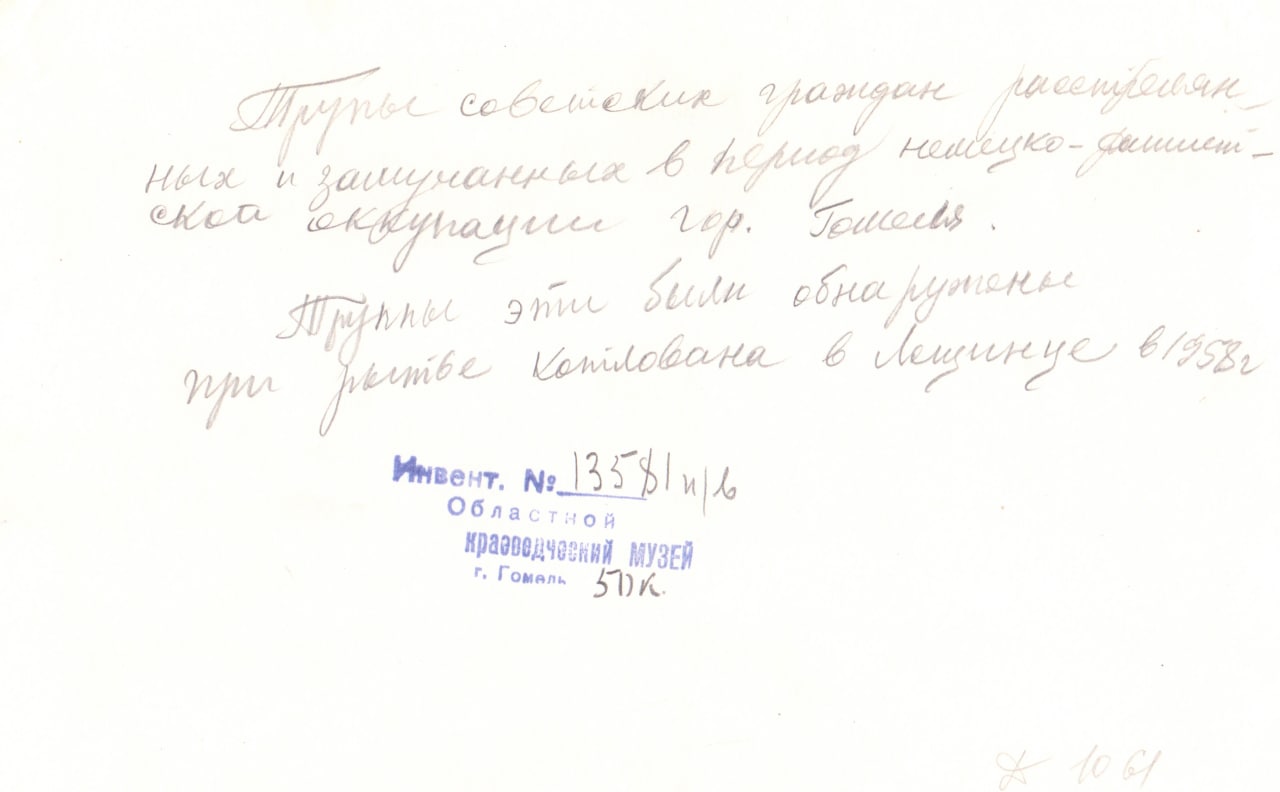 Трупы советских граждан расстрелян-
ных и замученных в период немецко-фашист-
ской оккупации гор. Гомеля.
Труппы эти были обнаружены
при рытье котлована в Лещинце в 1958г
Инвент. № 13581 н/в
Областной
краеведческий МУЗЕЙ
г. Гомель
1061